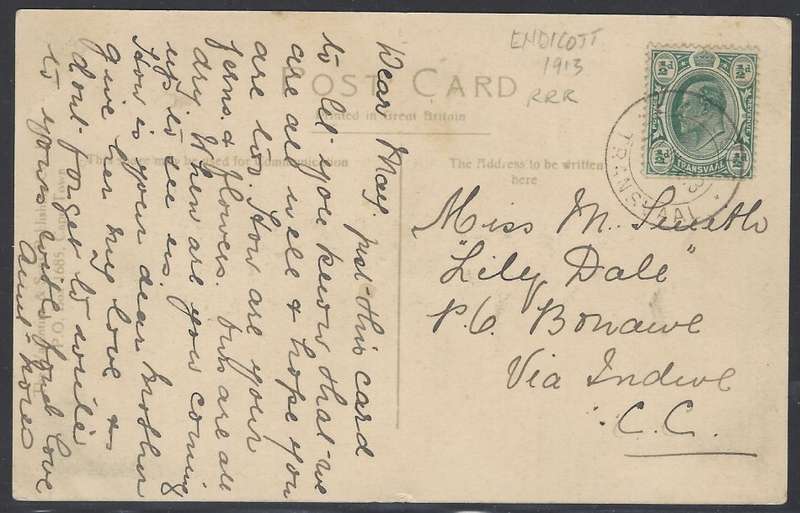 ENDICOTT
1913
RRR
POST CARD
Printed in Great Britain
The Address to be written
here
POSTAGE
REVENUE
TRANSVAAL
½d
TRANSVAAL
Miss M. Smith
"Lily Dale"
P.O. Bonawe
Via Indwe
C.C.
Dear May. just this card
to let you know that we
are all well & hope you
are too. How are your
ferns & flowers. ours are all
dry. When are you coming
up to see us.
How is your dear mother
give her my love &
dont forget to write
to yours with fond love
Aunt